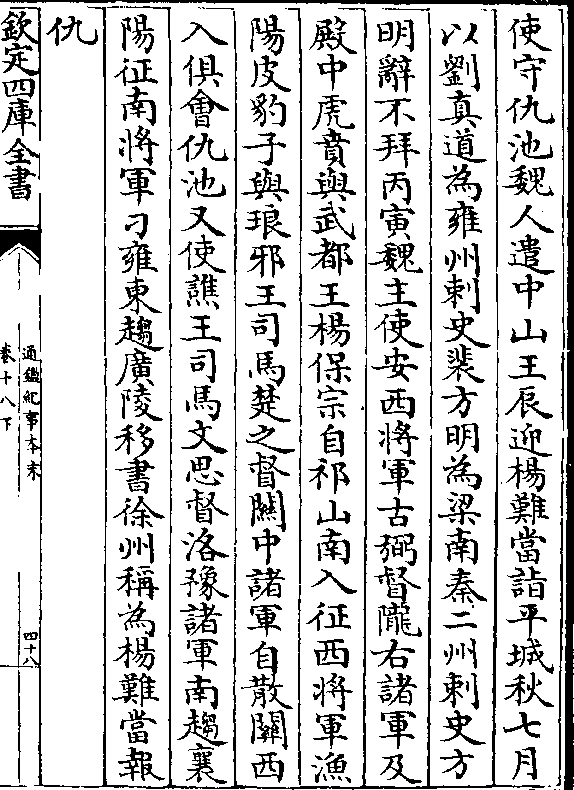 使守仇池魏人遣中山王辰迎楊難當詣平城秋七月
以劉真道為雍州刺史裴方明為梁南秦二州刺史方
明辭不拜丙寅魏主使安西將軍古弼督隴右諸軍及
殿中虎賁與武都王楊保宗自祁山南入征西將軍漁
陽皮豹子與琅邪王司馬楚之督關中諸軍自散關西
入俱會仇池又使譙王司馬文思督洛豫諸軍南趨襄
陽征南將軍刁雍東趨廣陵移書徐州稱為楊難當報
仇
欽定四庫全書
通鑑紀事本末
卷十八下
四十八